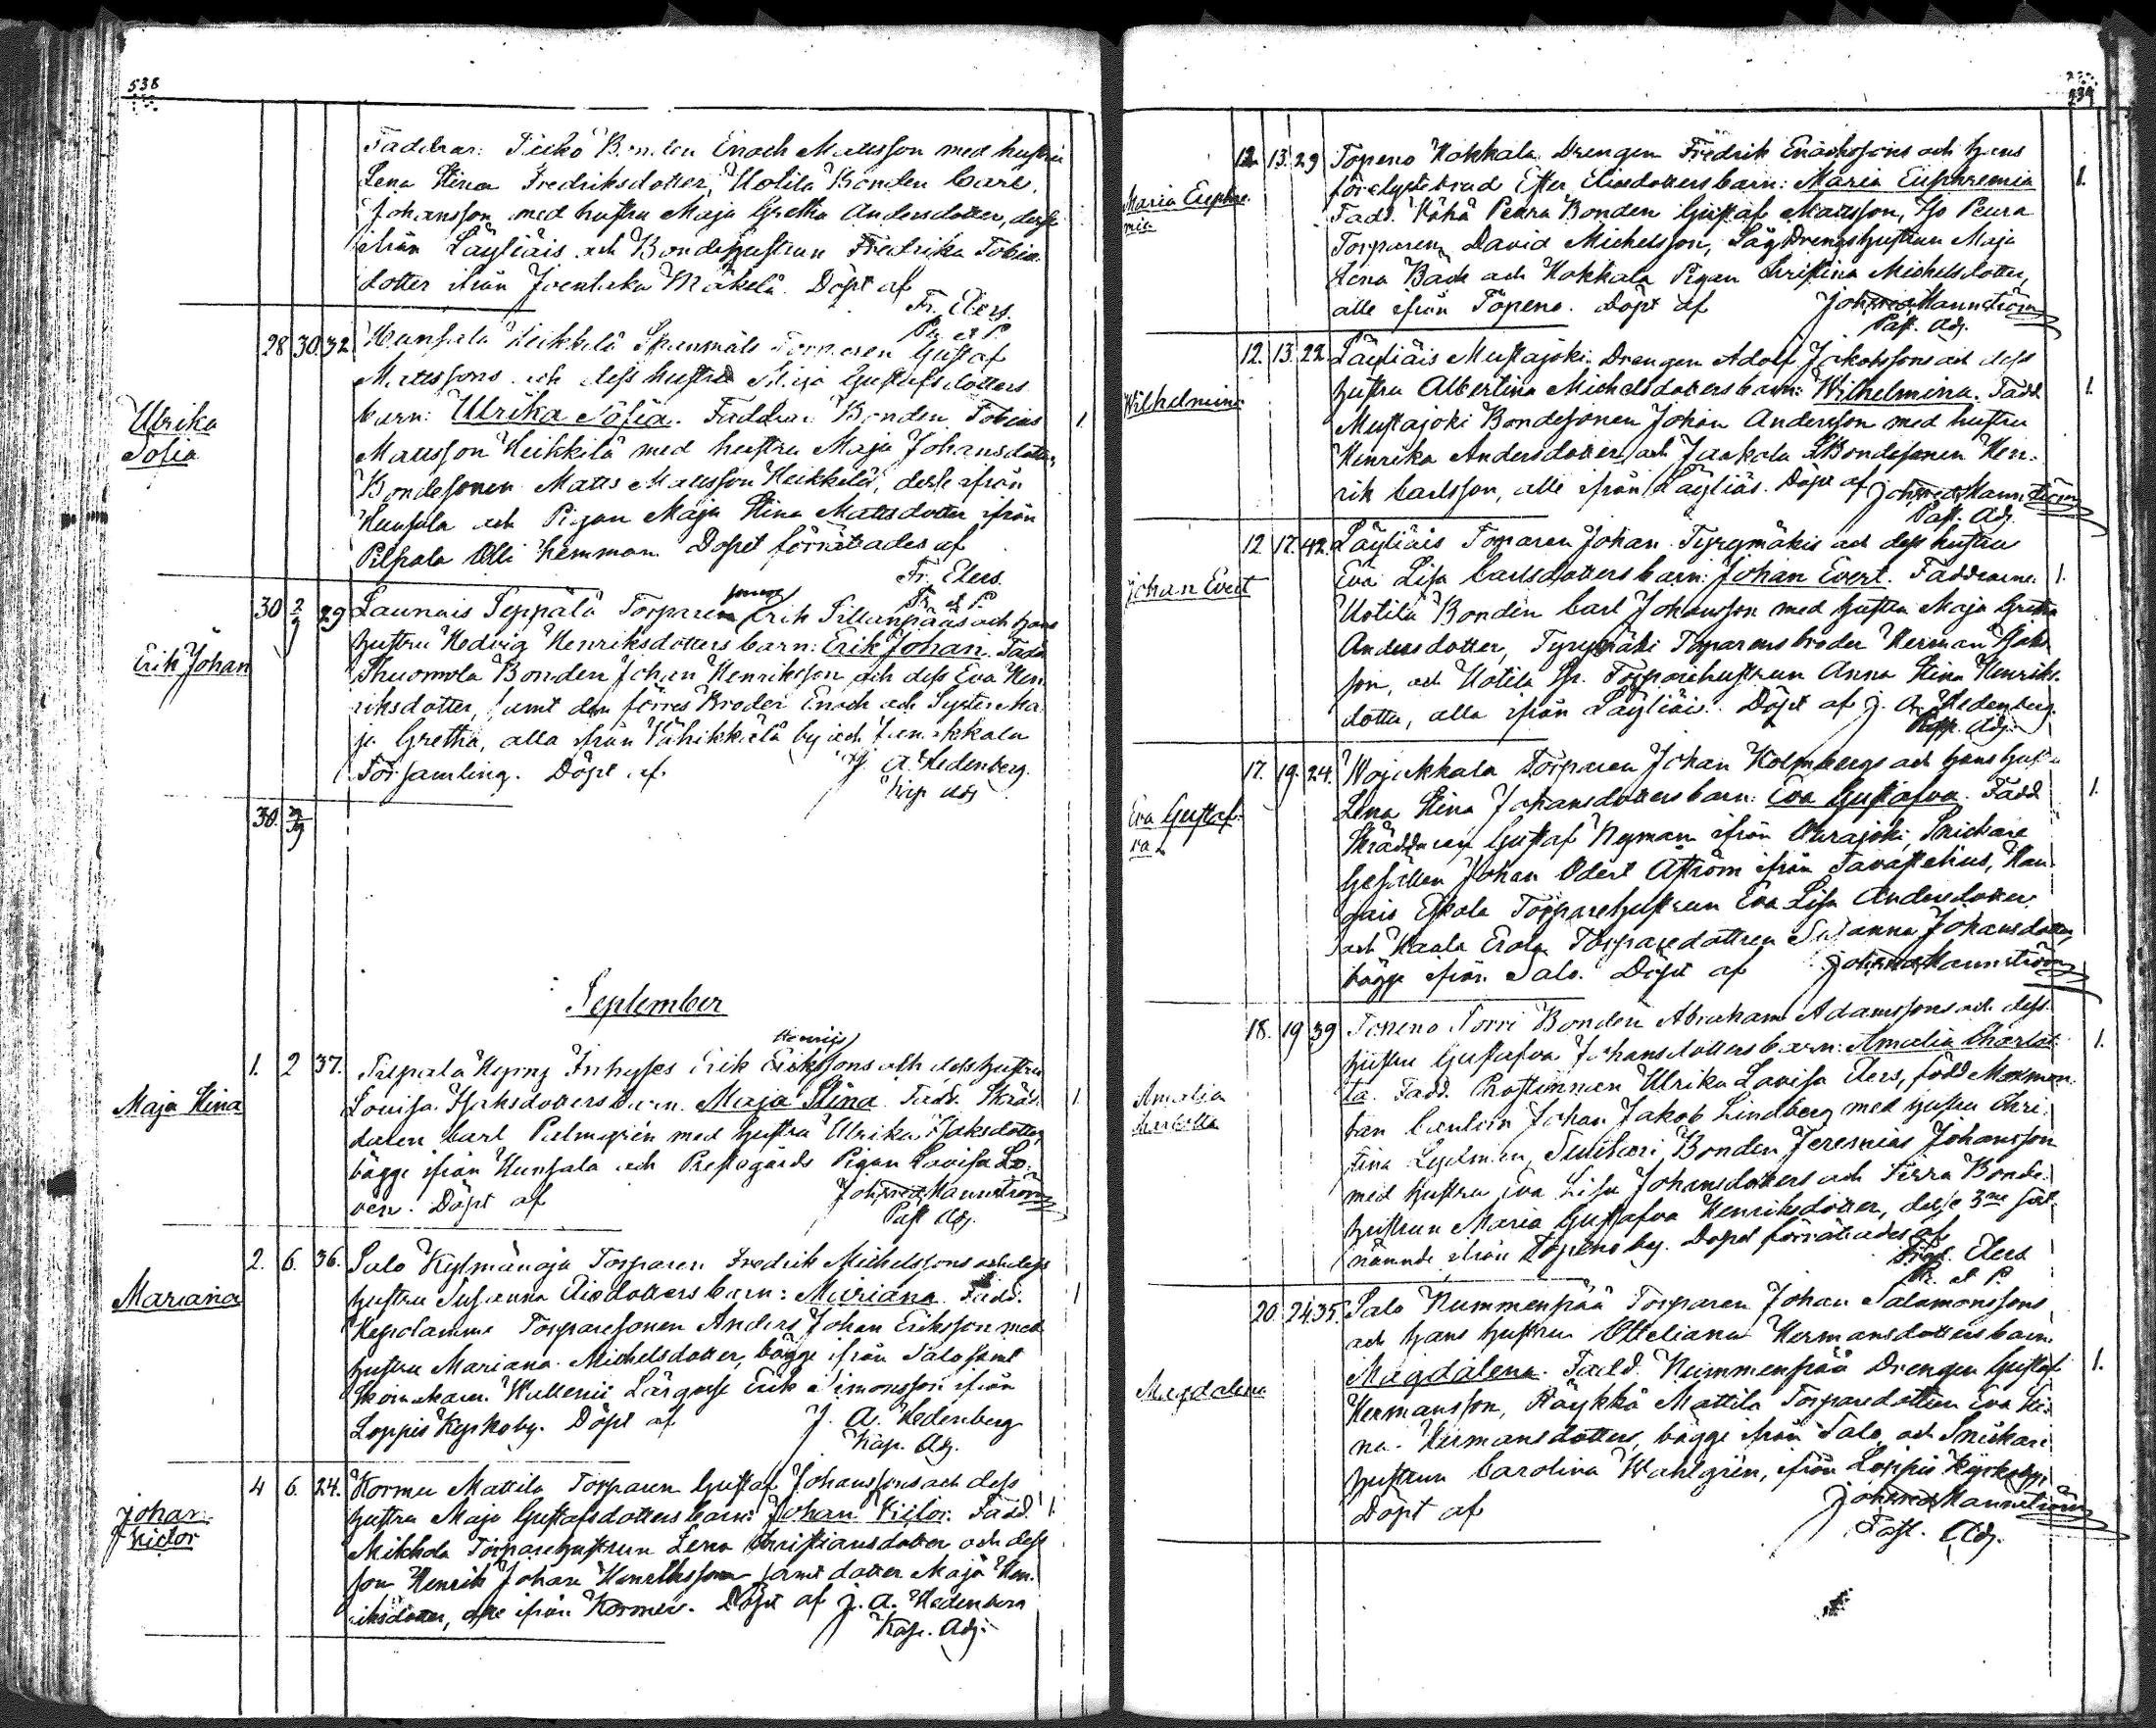 538
Faddrar: Bonden Enoch Mattsson med hustru
Lena Stina Fredriksdotter, Uotila Bonden Carl
Johansson med hustru Maja Gretha Andersdotter, desse
ifrån Läyliäis och Bondehustrun Fredrika Tobias
dotter ifrån Joentaka Mäkelä. Döpt af
Fr. Elers.
Pr. et P.
Ulrika
Sofia
28 30 32 Hunsala Heikkilä Spanmåls Torparen Gustaf
Mattssons och dess hustru Maja Gustafsdotters
barn: Ulrika Sofia. Faddrar Bonden Tobias 1
Mattsson Heikkilä med hustru Maja Johansdotter,
Bondesonen Matts Mattsson Heikkilä, desse ifrån
Hunsala och Pigan Maja Stina Mattsdotter ifrån
Pilpala Olli hemman. Dopet förrättades af
Fr. Elers.
Pr. et P.
Erik Johan
30 2/9 29 Launais Seppälä Torparesonen Erik Sillanpääs och hans
hustru Hedvig Henriksdotters barn: Erik Johan. Fadd.
Bonden Johan Henriksson och dess Eva Hen
riksdotter, samt den förres Broder Enoch och Syster Ma
ja Gretha, alla ifrån Vähikkälä by och Janakkala
Församling. Döpt af J. A. Hedenberg.
Kap. adj.
30. 2/9
September
Maja Stina
1. 2 37. Pilpala Inhyses Erik Erikssons och dess hustru
Lovisa Isaksdotters barn. Maja Stina. Fadd. Skräd- 1
daren Carl Palmgrén med hustru Ulrika Isaksdotter,
bägge ifrån Hunsala och Prestegårds Pigan Lovisa Lo-
vén. Döpt af Joh. Fred. Mannström
Past. Adj.
Mariana
2. 6. 36. Salo Kylmänoja Torparen Fredrik Michelssons och dess
hustru Susanna Eliedotters barn: Mariana. Fadd. 1
Torparesonen Anders Johan Eriksson med
hustru Mariana Michelsdotter, bägge ifrån Salo samt
Skomakare Lärgosse Erik Simonsson ifrån
Loppis Kyrkoby. Döpt af J. A. Hedenberg
Kap. Adj.
Johan
Victor
4 6. 24. Kormu Mattila Torparen Gustaf Johanssons och dess
hustru Maja Gustafsdotters barn: Johan Victor. Fadd. 1.
Mikkola Torparehustrun Lena Christiansdotter och dess
son Henrik Johan Henriksson samt dotter Maja Hen-
riksdotter, alle ifrån Kormu. Döpt af J. A. Hedenberg
Kap. Adj.
539
Maria Euphre
mia
12. 13. 29 Topeno Kokkala Drengen Fredrik Enochssons och hans
förelystebrud Ester Eliedotters barn: Maria Euphremia 1.
Fadd. Vähä Peura Bonden Gustaf Mattsson, Iso Peura
Torparen David Michelsson, Drengshustrun Maja
Lena Bäck och Kokkala Pigan Christina Michelsdotter,
alle ifrån Topeno. Döpt af Joh. Fred. Mannström
Past. Adj.
Wilhelmina
12. 13. 22. Läyliäis Mustajoki Drengen Adolf Jakobssons och dess
hustru Albertina Michelsdotters barn: Wilhelmina. Fadd 1.
Mustajoki Bondesonen Johan Andersson med hustru
Henrika Andersdotter, och Jaakola Bondesonen Hen-
rik Carlsson, alle ifrån Läyliäs. Döpt af Joh. Fred. Mannström
Past. Adj.
Johan Evert
12 17. 42. Läyliäis Torparen Johan Tyrymäkis och dess hustru
Eva Lisa Carlsdotters barn: Johan Evert. Faddrarne 1.
Uotila Bonden Carl Johansson med hustru Maja Gretha
Andersdotter, Tyrymäki Torparens broder Herman Isaks
son, och Uotila Sp. Torparehustrun Anna Stina Henriks-
dotter, alla ifrån Läyliäis. Döpt af J. A. Hedenberg.
Kap. Adj.
Eva Gustaf-
va
17. 19. 24. Wojakkala Torparen Johan Holmbergs och hans hustru
Lena Stina Johansdotters barn: Eva Gustafva. Fadd 1.
Skräddaren Gustaf Nyman ifrån Ourajoki, Snickare
Gesällen Johan Odert Åström ifrån Tavastehus, Kan-
gais Eskola Torparehustrun Eva Lisa Andersdotter
och Kaala Erola Torparedottren Susanna Johansdotter,
bägge ifrån Salo. Döpt af Joh. Fred. Mannström
Amalia
Charlotta
18. 19 39 Topeno Torri Bonden Abraham Adamssons och dess
hustru Gustafva Johansdotters barn: Amalia Charlot- 1.
ta. Fadd. Prostinnan Ulrika Lovisa Elers, född Moxman,
Cantorn Johan Jakob Lindberg med hustru Chri-
stina Bonden Jeremias Johansson
med hustru Eva Lisa Johansdotters och Torra Bonde-
hustrun Maria Gustafva Henriksdotter, desse 3ne sist-
nämnde ifrån Topeno by. Dopet förrättades af
Fred. Elers
Pr. et P.
Magdalena
20. 24 35. Salo Nummenpää Torparen Johan Salomonssons
och hans hustru Otteliana Hermansdotters barn:
Magdalena. Fadd. Nummenpää Drengen Gustaf 1.
Hermansson, Räykkä Mattila Torparedottren Eva Sti-
na Hermansdotter, bägge ifrån Salo, och Snickare
hustrun Carolina Wahlgrén, ifrån Loppis Kyrkoby.
Döpt af Joh. Fred. Mannström
Past. Adj.